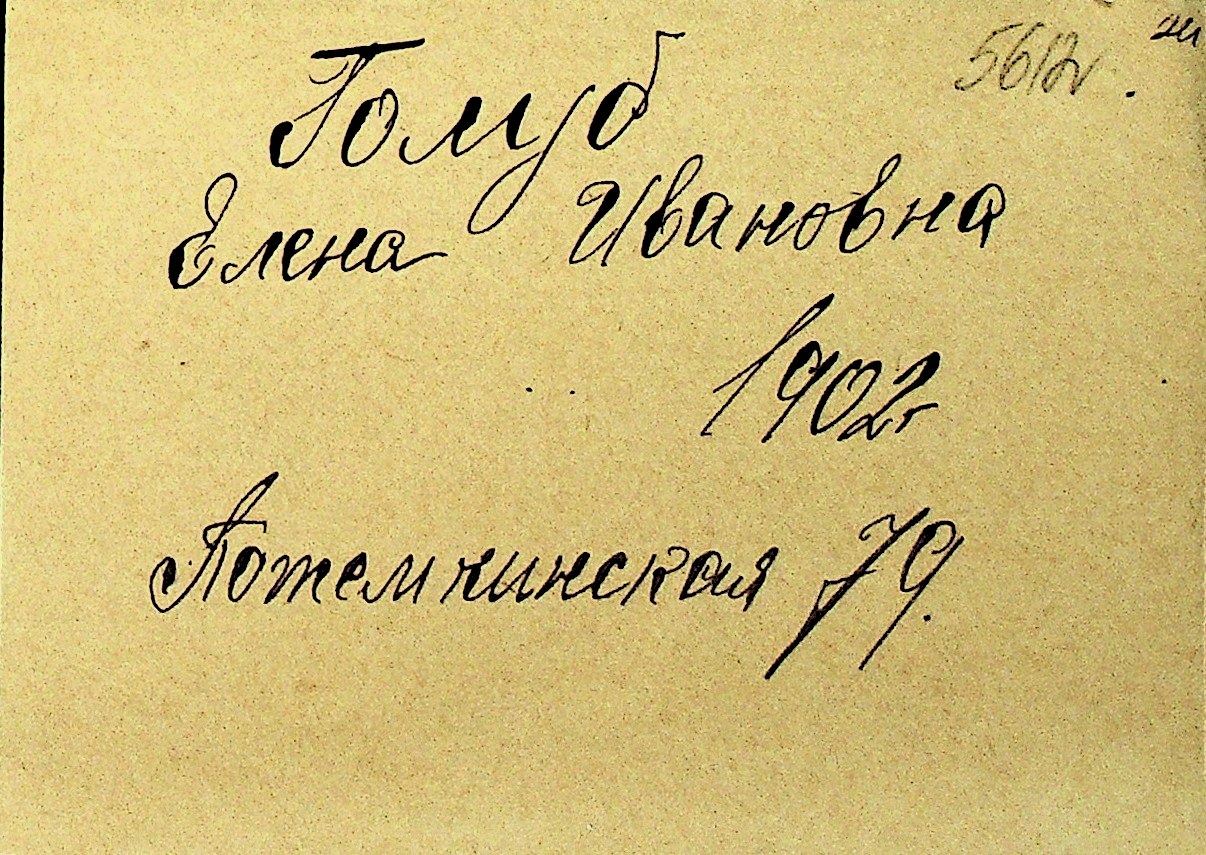 Голуб
Елена Ивановна
1902г
Потемкинская 79.